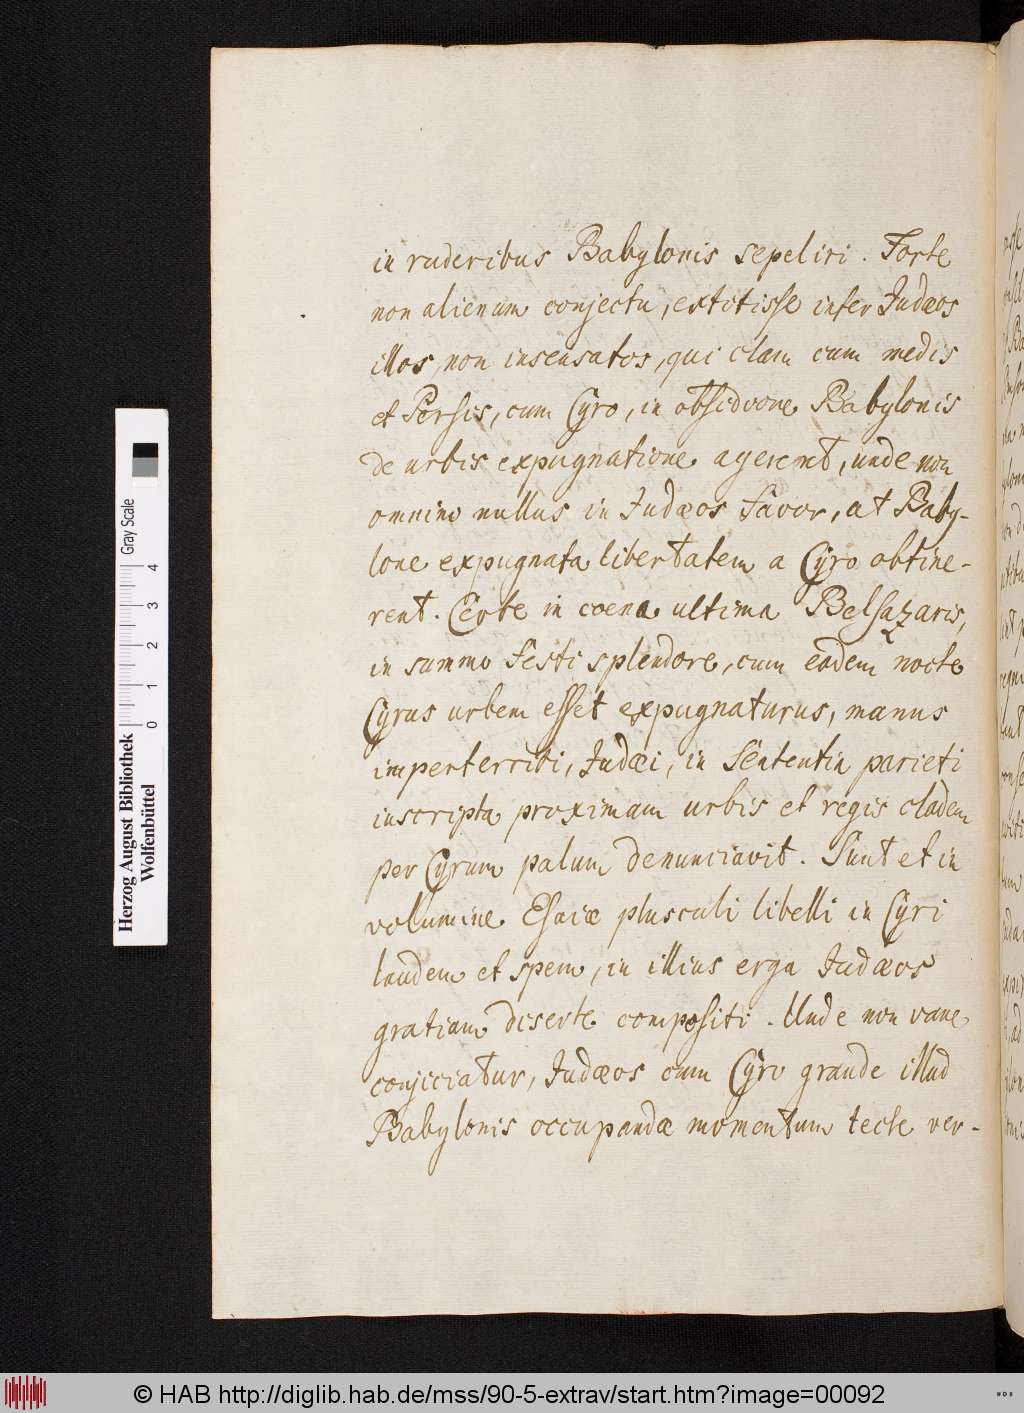 in ruderibus Babylonis sepeliri. Forte
non alienum conjectu, extitisse inter Judæos
illos, non insensatos, qui clam cum medis
et Persis, cum Cyro, in obsidione Babylonis
de urbis expugnatione agerent, unde non
omnino nullus in Judæos favor, at Baby-
lone expugnata libertatem a Cyro obtine-
rent. Certe in coena ultima Belsazaris,
in summo festi splendore, cum eadem nocte
Cyrus urbem esset expugnaturus, manus
imperterriti, Judæi, in sententia parieti
inscripta proximam urbis et regis cladem
per Cyrum palum denunciavit. Sunt et in
volumine Esaiæ plusculi libelli in Cyri
laudem et spem, in illius erga Judæos
gratiam diserte compositi. Unde non vane
conjiciatur, Judæos cum Cyro grande illud
Babylonis occupandæ momentum tecte ver-
Herzog August Bibliothek
Wolfenbüttel
0 1 2 3 4
Gray Scale
© HAB http://diglib.hab.de/mss/90-5-extrav/start.htm?image=00092